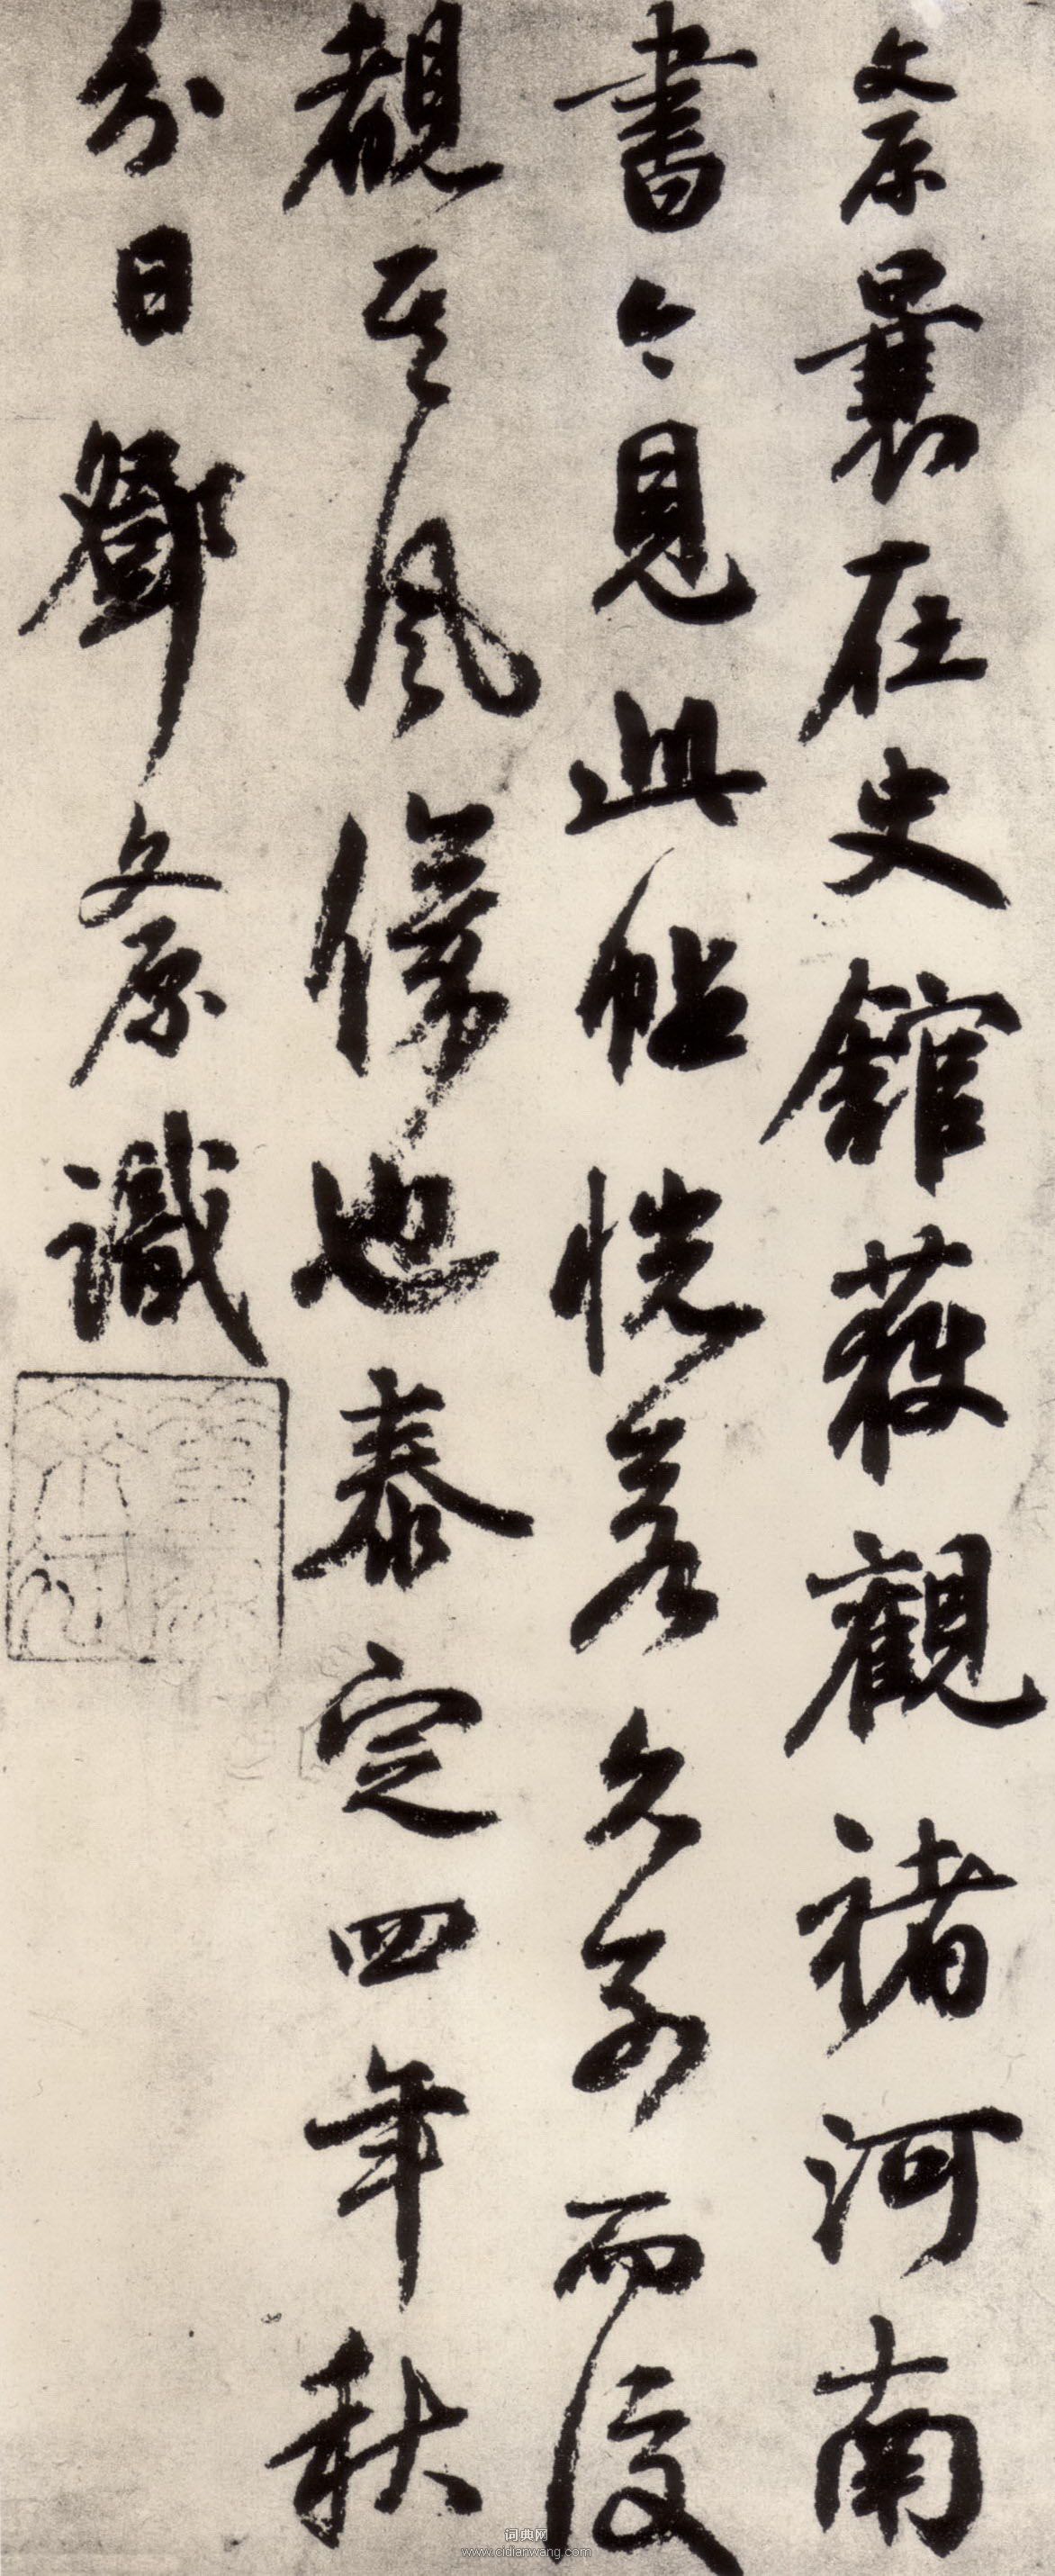 文原曩在史館获觀褚河南
書今見此帖恍若久别而復
覩其風儀也泰定四年秋
分日鄧文原識
词典网
www.cidianwang.com